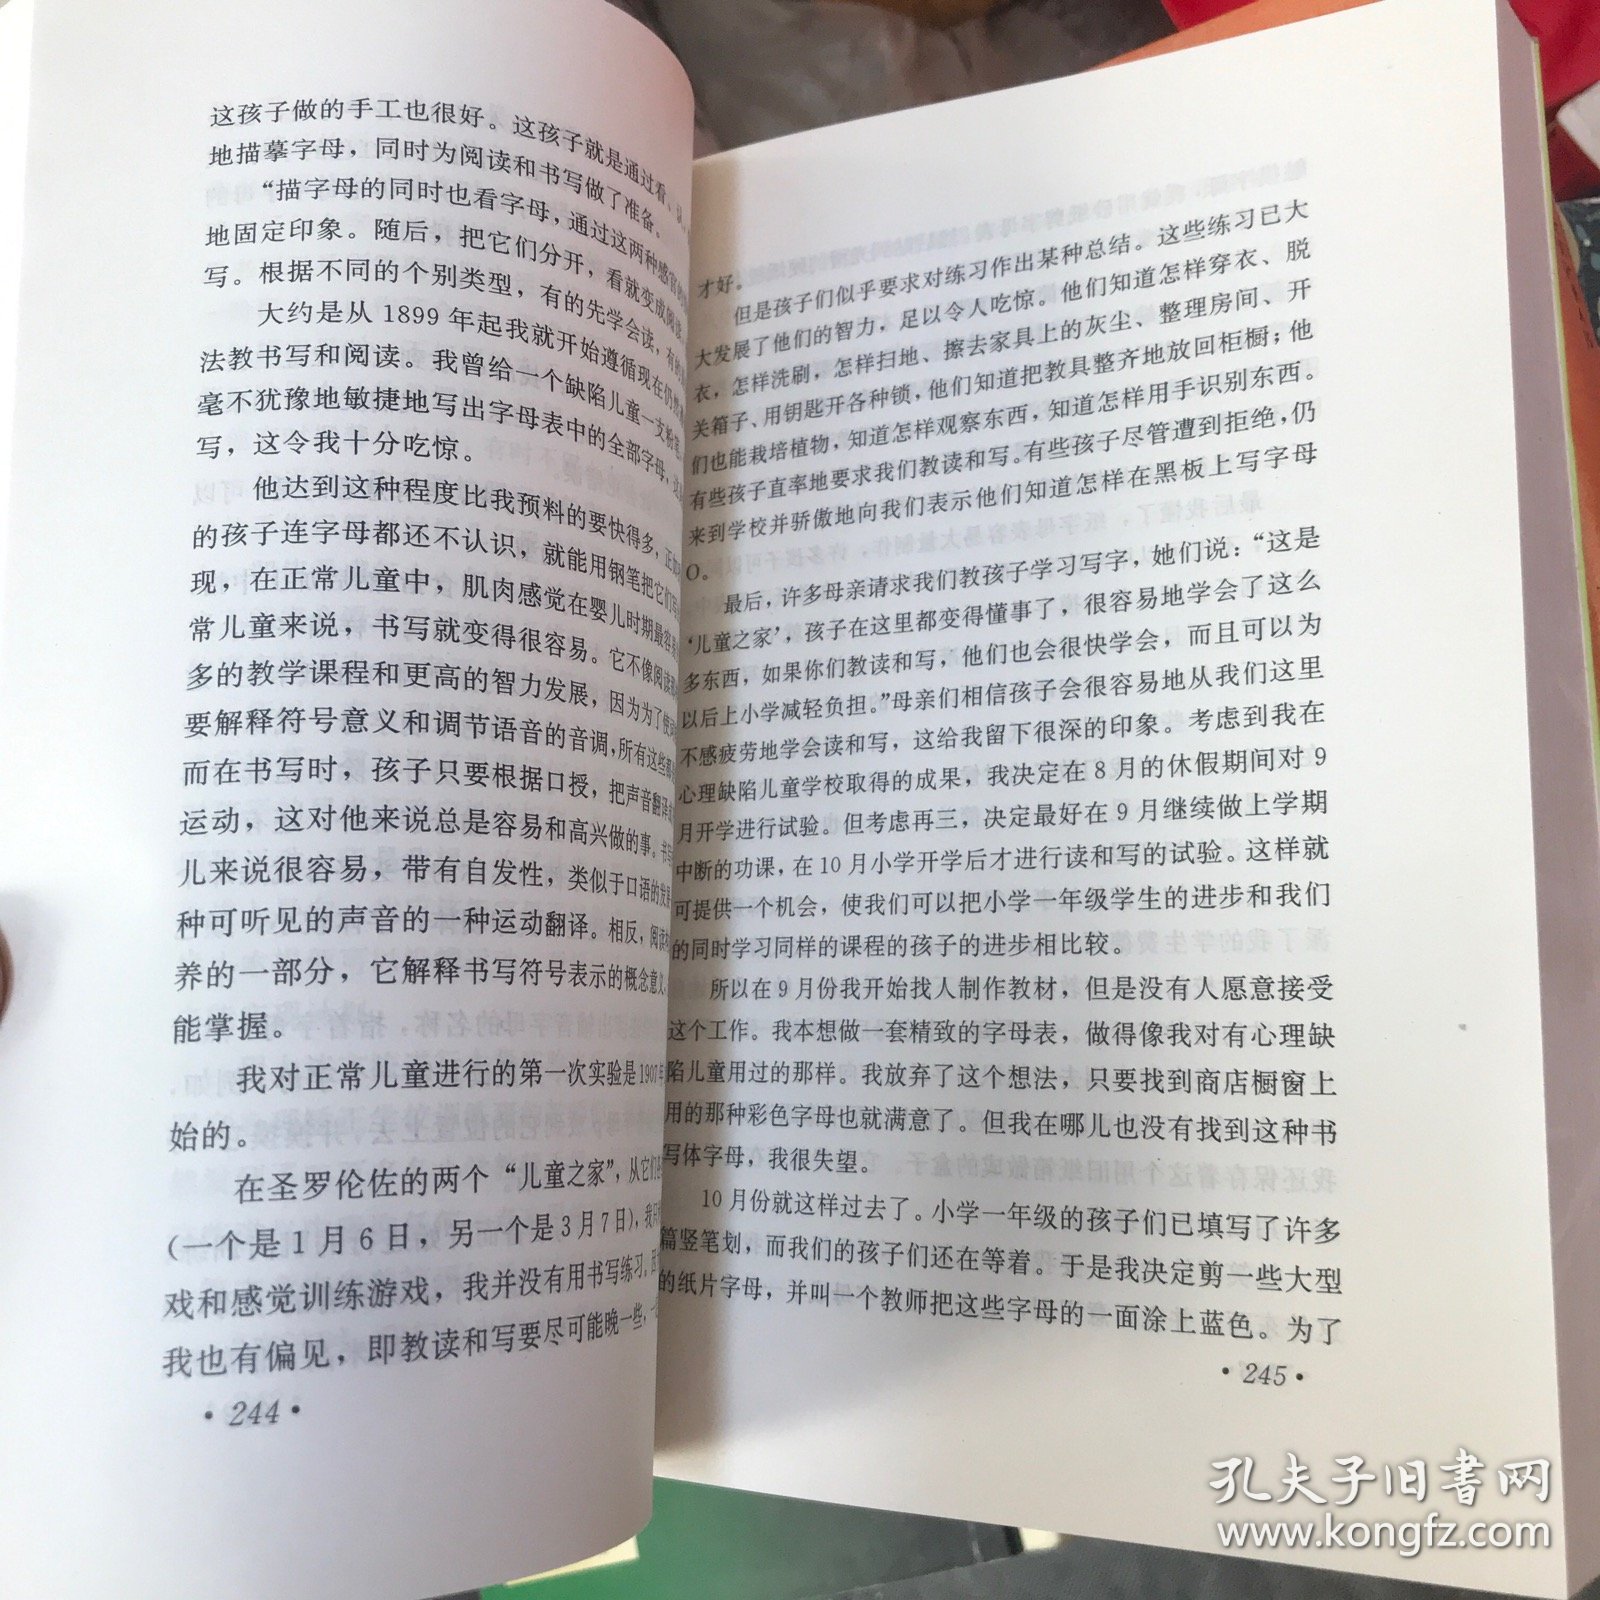 这孩子做的手工也很好。这孩子就是通过看、
地描摹字母，同时为阅读和书写做了准备。
“描字母的同时也看字母，通过这两种感官的
地固定印象。随后，把它们分开，看就变成阅读
写。根据不同的个别类型，有的先学会读，有的
大约是从1899年起我就开始遵循现在仍然
法教书写和阅读。我曾给一个缺陷儿童一支粉笔
毫不犹豫地敏捷地写出字母表中的全部字母，
写，这令我十分吃惊。
他达到这种程度比我预料的要快得多，正如
的孩子连字母都还不认识，就能用钢笔把它们写
现，在正常儿童中，肌肉感觉在婴儿时期最容易
常儿童来说，书写就变得很容易。它不像阅读那
多的教学课程和更高的智力发展，因为为了使
要解释符号意义和调节语音的音调，所有这些都
而在书写时，孩子只要根据口授，把声音翻译
运动，这对他来说总是容易和高兴做的事。书写
儿来说很容易，带有自发性，类似于口语的发展
种可听见的声音的一种运动翻译。相反，阅读
养的一部分，它解释书写符号表示的概念意义
能掌握。
我对正常儿童进行的第一次实验是1907年
始的。
在圣罗伦佐的两个“儿童之家”，从它们
（一个是1月6日，另一个是3月7日），我只
戏和感觉训练游戏，我并没有用书写练习。
我也有偏见，即教读和写要尽可能晚一些，
·244·
才好。
但是孩子们似乎要求对练习作出某种总结。这些练习已大
大发展了他们的智力，足以令人吃惊。他们知道怎样穿衣、脱
衣，怎样洗刷，怎样扫地、擦去家具上的灰尘、整理房间、开
关箱子、用钥匙开各种锁，他们知道把教具整齐地放回柜橱；他
们也能栽培植物，知道怎样观察东西，知道怎样用手识别东西。
有些孩子直率地要求我们教读和写。有些孩子尽管遭到拒绝，仍
来到学校并骄傲地向我们表示他们知道怎样在黑板上写字母
O。
最后，许多母亲请求我们教孩子学习写字，她们说：“这是
‘儿童之家’，孩子在这里都变得懂事了，很容易地学会了这么
多东西，如果你们教读和写，他们也会很快学会，而且可以为
以后上小学减轻负担。”母亲们相信孩子会很容易地从我们这里
不感疲劳地学会读和写，这给我留下很深的印象。考虑到我在
心理缺陷儿童学校取得的成果，我决定在8月的休假期间对9
月开学进行试验。但考虑再三，决定最好在9月继续做上学期
中断的功课，在10月小学开学后才进行读和写的试验。这样就
可提供一个机会，使我们可以把小学一年级学生的进步和我们
的同时学习同样的课程的孩子的进步相比较。
所以在9月份我开始找人制作教材，但是没有人愿意接受
这个工作。我本想做一套精致的字母表，做得像我对有心理缺
陷儿童用过的那样。我放弃了这个想法，只要找到商店橱窗上
用的那种彩色字母也就满意了。但我在哪儿也没有找到这种书
写体字母，我很失望。
10月份就这样过去了。小学一年级的孩子们已填写了许多
篇竖笔划，而我们的孩子们还在等着。于是我决定剪一些大型
的纸片字母，并叫一个教师把这些字母的一面涂上蓝色。为了
·245·
孔夫子旧书网
www.kongfz.com